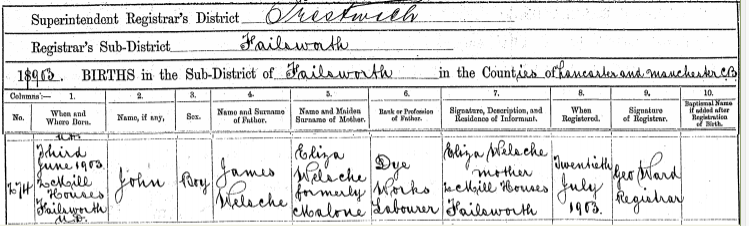 Superintendent Registrar's District Prestwich
Registrar's Sub-District Failsworth
1903. BIRTHS in the Sub-District of Failsworth in the Counties of Lancaster and Manchester C.B.
Columns:— 1. 2. 3. 4. 5. 6. 7. 8. 9. 10.
No. When and Where Born. Name, if any, Sex. Name and Surname of Father. Name and Maiden Surname of Mother. Rank or Profession of Father. Signature, Description, and Residence of Informant. When Registered. Signature of Registrar. Baptismal Name if added after Registration of Birth.
274
Third
June 1903
2 Mill
Houses
Failsworth
U.D.
John
Boy
James
Welsche
Eliza
Welsche
formerly
Malone
Dye
Works
Labourer
Eliza Welsche
mother
2 Mill Houses
Failsworth
Twentieth
July
1903.
Geo Ward
Registrar